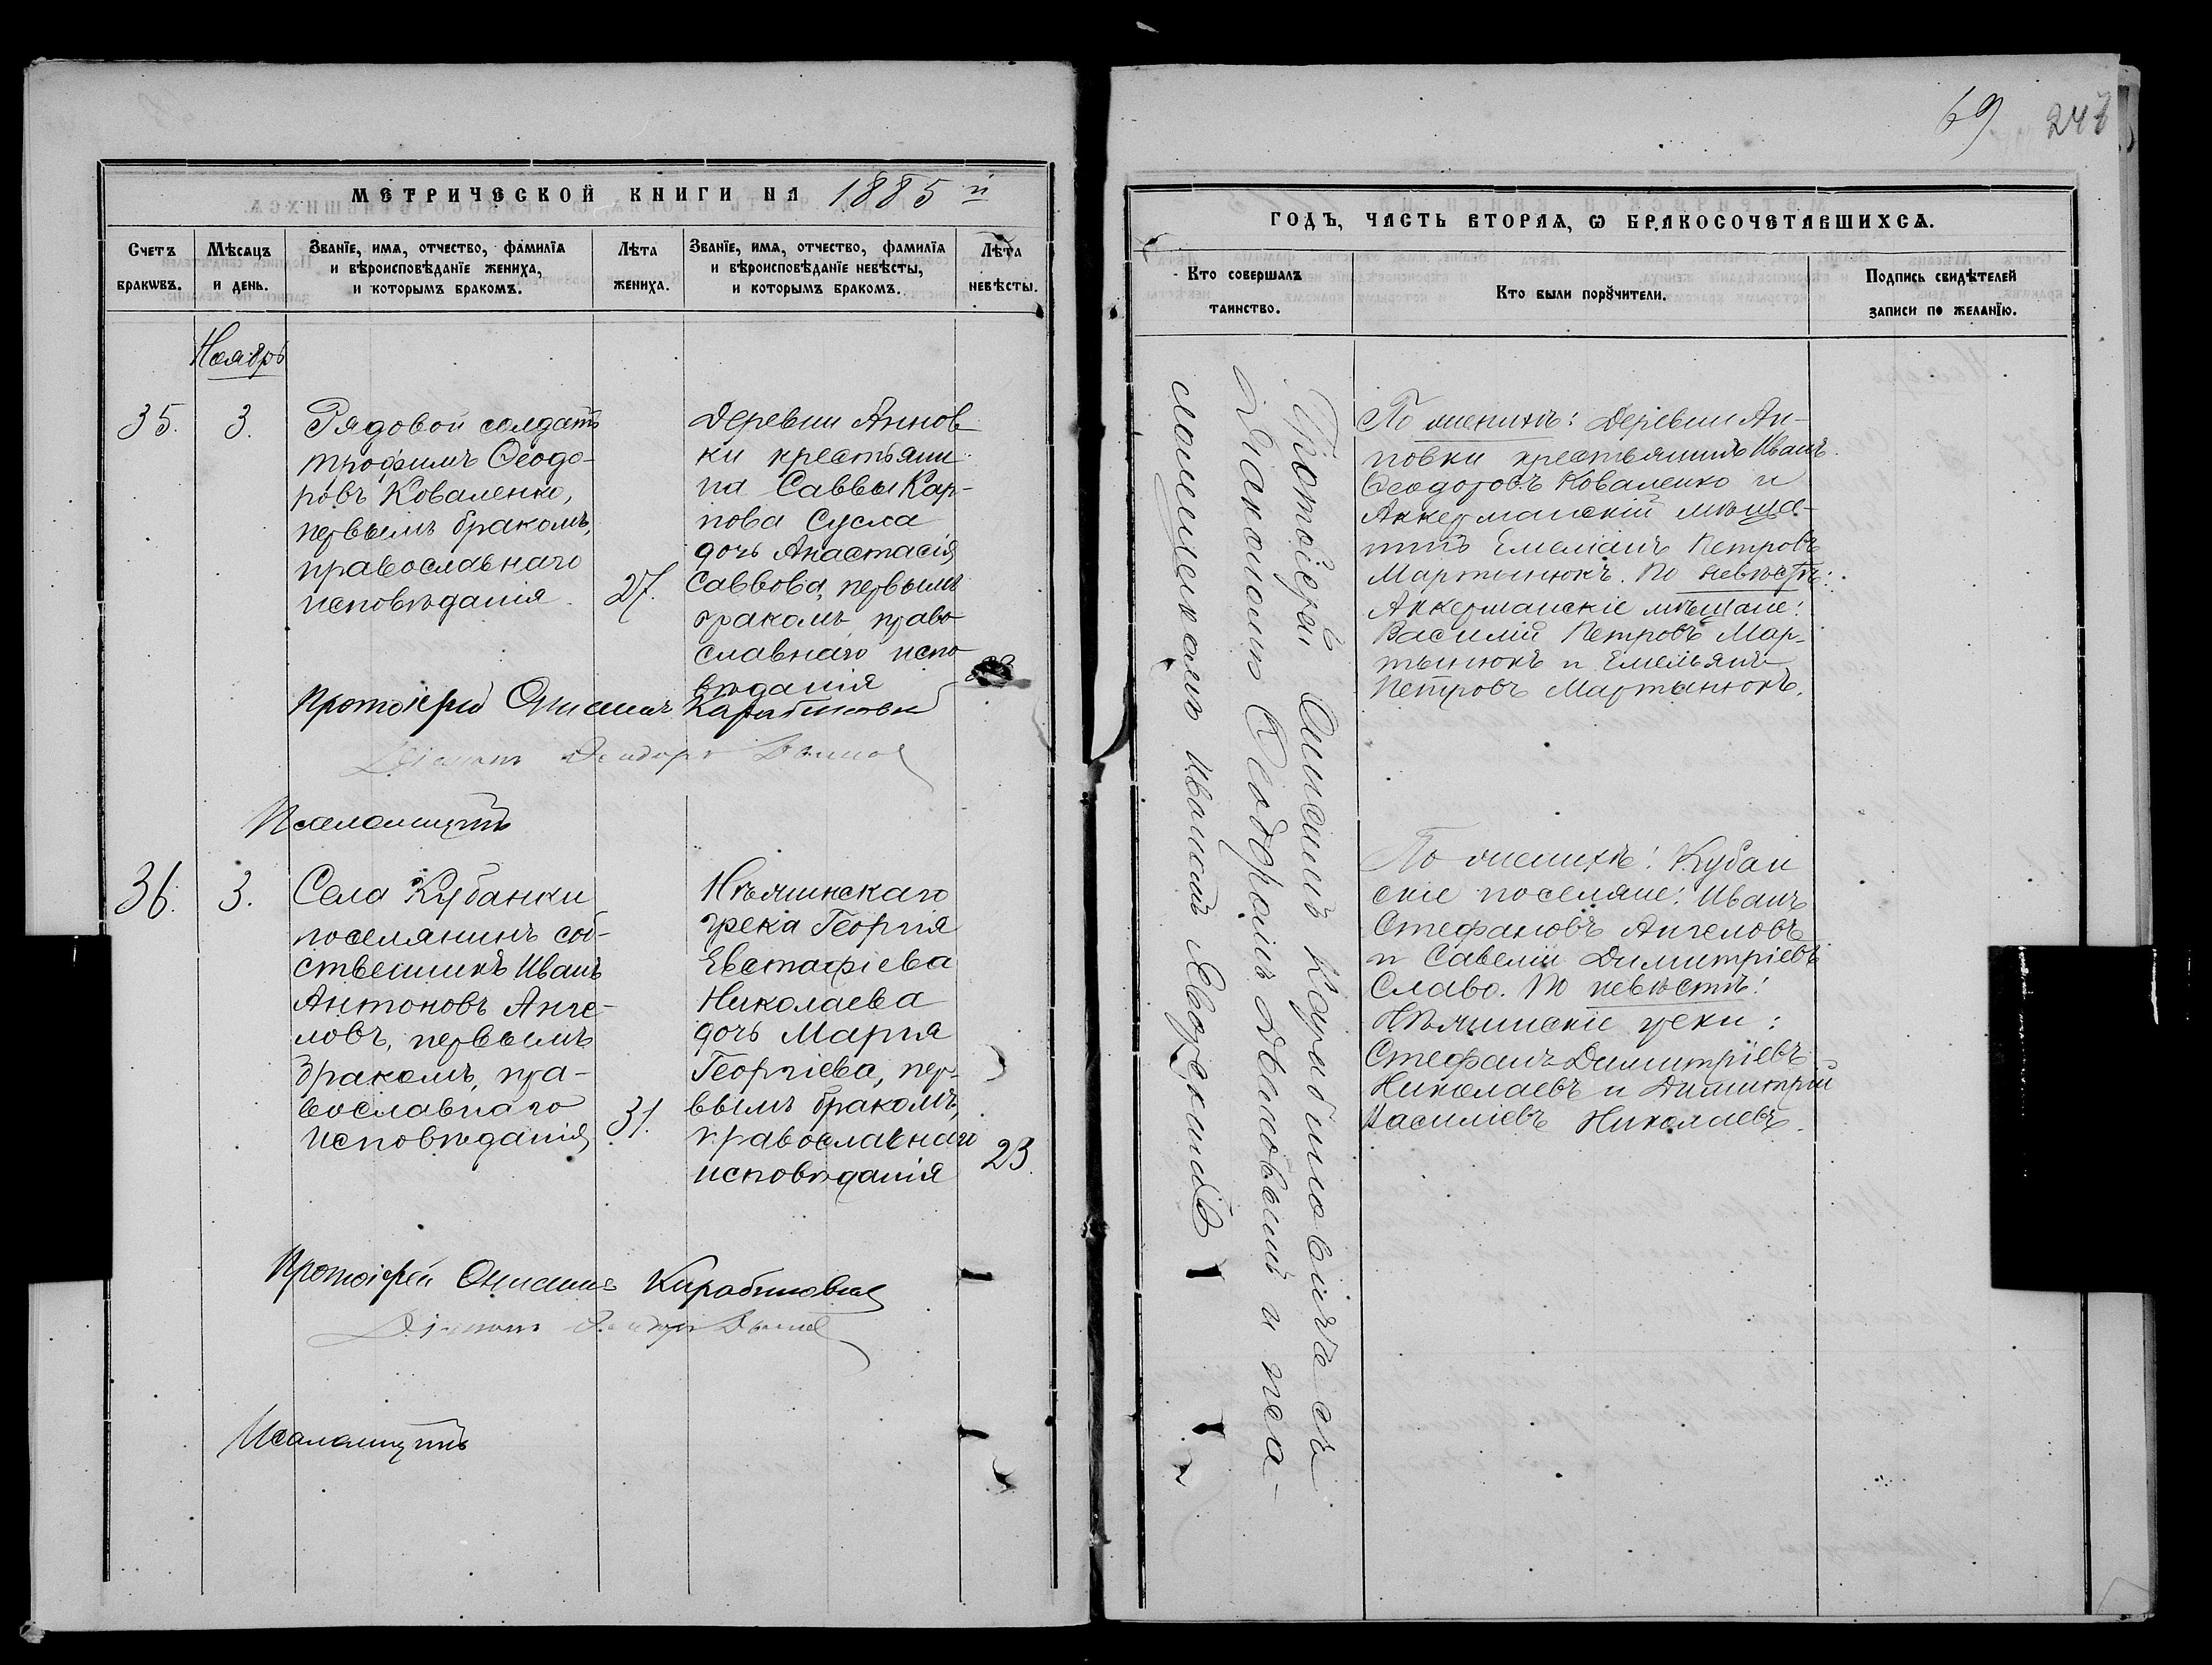 69 247
МЕТРИЧЕСКОЙ КНИГИ НА 1885 й
Счетъ браковъ.
Мѣсяцъ и день.
Званїе, имя, отчество, фамилїя и вѣроисповѣданїе жениха, и которымъ бракомъ.
Лѣта жениха.
Званїе, имя, отчество, фамилїя и вѣроисповѣданїе невѣсты, и которымъ бракомъ.
Лѣта невѣсты.
Ноябрь
35.
3.
Рядовой солдатъ
Трофимъ Ѳеодо-
ровъ Коваленко,
первымъ бракомъ,
православнаго
исповѣданія
27.
Деревни Аннов
ки крестьяни
на Саввы Кар-
пова Сусла
дочь Анастасія
Саввова, первымъ
бракомъ, право
славнаго испо
вѣданія
Протоіерей Онисимъ Карабиновичъ
Діаконъ Ѳеодоръ
Псаломщикъ
36.
3.
Села Кубанки
поселянинъ соб-
ственникъ Иванъ
Антоновъ Анге-
ловъ, первымъ
бракомъ, пра-
вославнаго
исповѣданія
31.
Нѣжинскаго
грека Георгія
Евстафіева
Николаева
дочь Марія
Георгіева, пер-
вымъ бракомъ,
православнаго
исповѣданія
23.
Протоіерей Онисимъ Карабиновичъ
Діаконъ Ѳеодоръ
Псаломщикъ
ГОДЪ, ЧАСТЬ ВТОРАЯ, Ѡ БРАКОСОЧЕТАВШИХСЯ.
Кто совершалъ таинство.
Кто были порꙋчители.
Подпись свидѣтелей записи по желанїю.
Протоіерей Онисимъ Карабиновичъ съ
діакономъ Ѳеодоромъ и пса-
ломщикомъ
По женихѣ: Деревни Ан-
новки крестьянинъ Иванъ
Ѳеодоровъ Коваленко и
Аккерманскій мѣща-
нинъ Емеліанъ Петровъ
Мартынюкъ. По невѣстѣ:
Аккерманскіе мѣщане:
Василій Петровъ Мар-
тынюкъ и Емельянъ
Петровъ Мартынюкъ.
По женихѣ: Кубан
скіе поселяне: Иванъ
Стефановъ Ангеловъ
и Савелій Димитріевъ
Славо. По невѣстѣ:
Нѣжинскіе греки:
Стефанъ Димитріевъ
Николаевъ и Димитрій
Василіевъ Николаевъ.